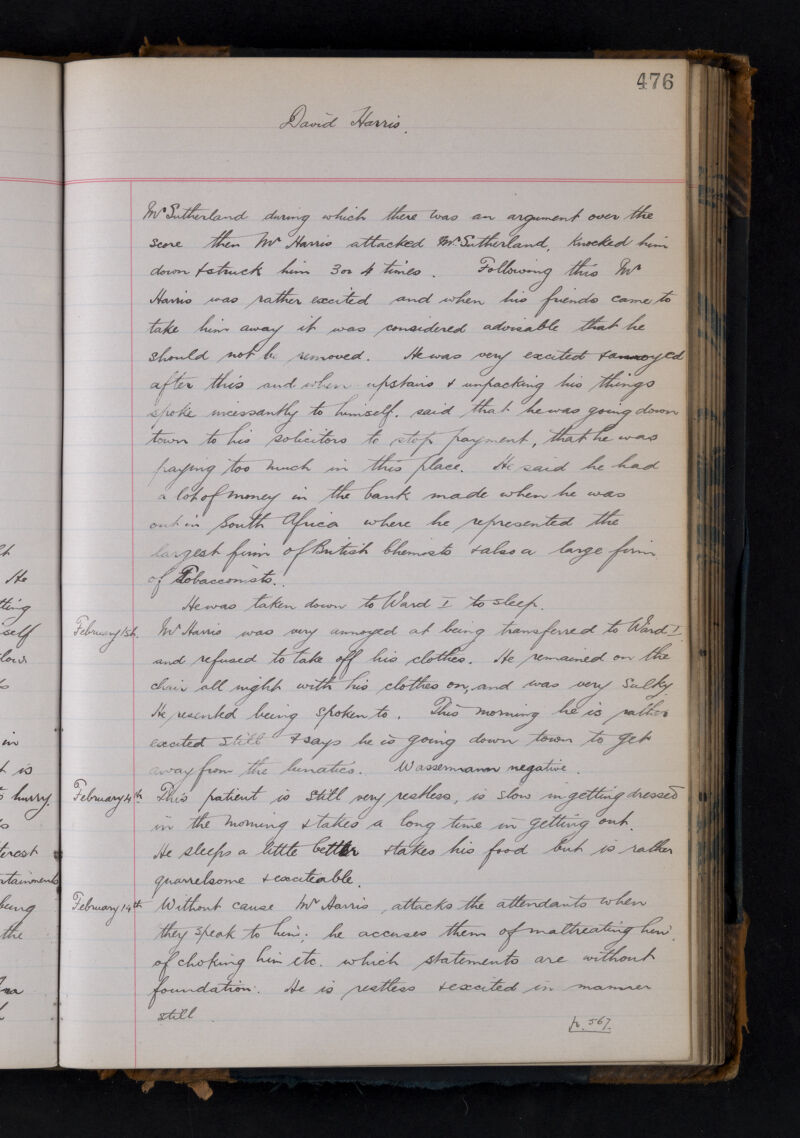 476
David Harris.
Mr Sutherland during which there was an argument over the
score then Mr Harris attacked Mr Sutherland, knocked him
down & struck him 3 or 4 times. Following this Mr
Harris was rather excited and when his friends came to
take him away it was considered advisable that he
should not be removed. He was very excited & annoyed
after this and when upstairs & unpacking his things
spoke incessantly to himself. said that he was going down
town to his solicitors to stop payment, that he was
paying too much in this place. He said he had
a lot of money in the bank made when he was
out in South Africa where he represented the
largest firm of British Chemists & also a large firm
of Tobacconists.
He was taken down to Ward I to sleep.
February 1st. Mr Harris was very annoyed at being transferred to Ward I.
and refused to take off his clothes. He remained on the
chair all night with his clothes on, and was very sulky.
He resented being spoken to. This morning he is rather
excited still & says he is going down town to get
away from the lunatics. Wassermann negative.
February 4th This patient is still very restless, is slow in getting dressed
in the morning & takes a long time in getting out.
He sleeps a little better & takes his food but is rather
quarrelsome & exciteable.
February 14th Without cause Mr Harris, attacks the attendants when
they speak to him; he accuses them of maltreating him,
of choking him etc. which statements are without
foundation. He is restless & excited in manner
still.
p. 567.
He
self
in
is
hurry.
being
the